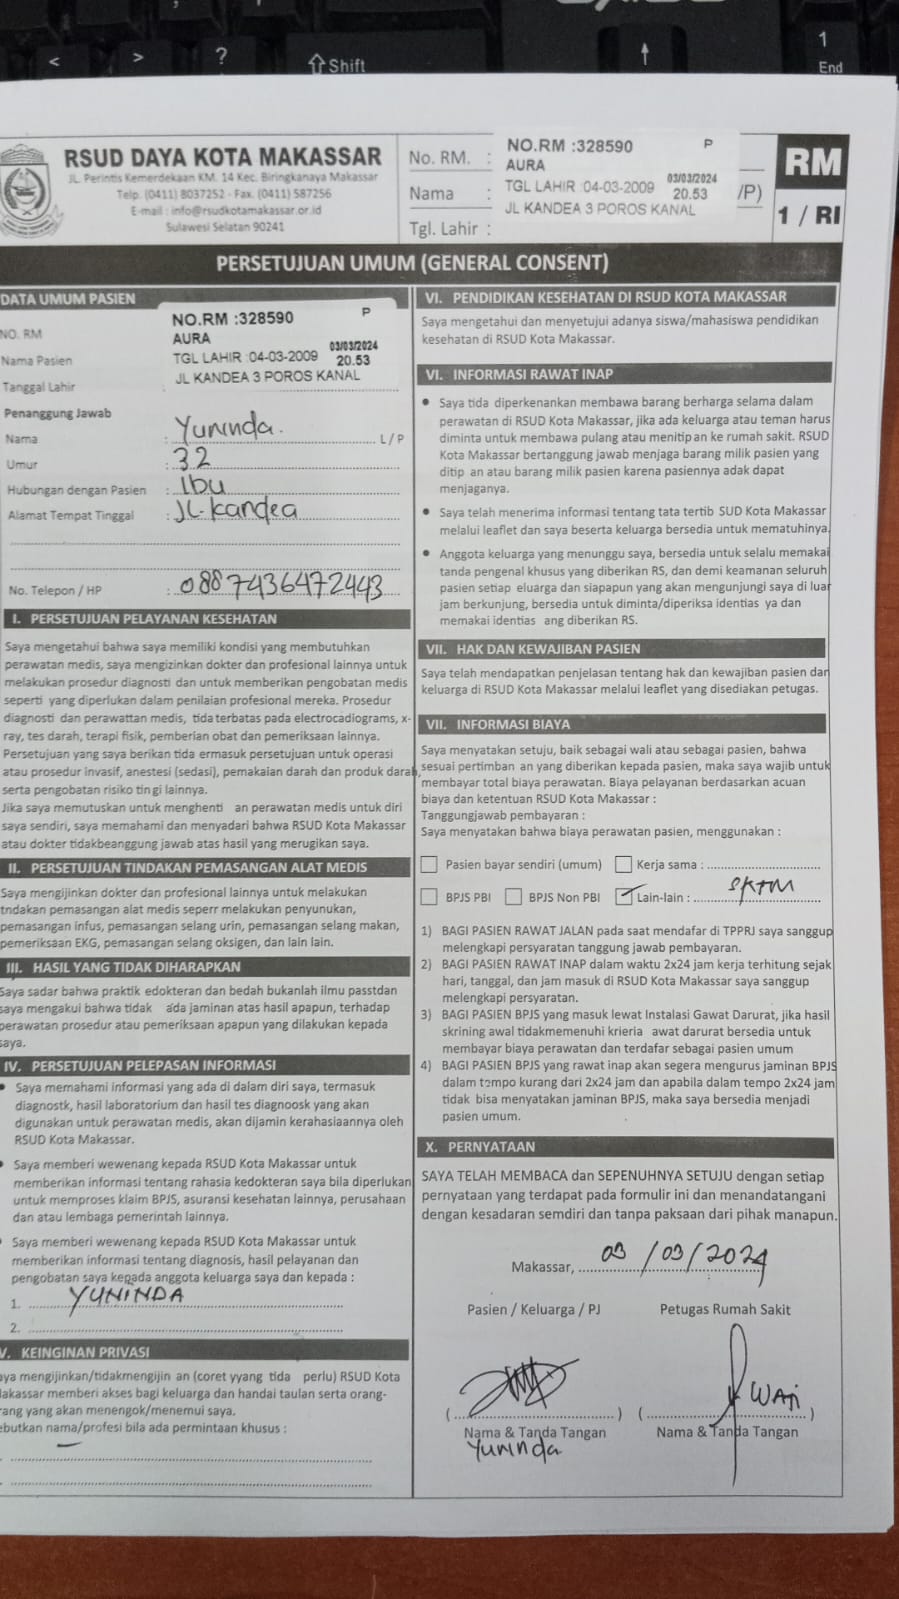 <
>
?
⇧Shift
↑
1
End
RSUD DAYA KOTA MAKASSAR
JL. Perintis Kemerdekaan KM. 14 Kec. Biringkanaya Makassar
Telp. (0411) 8037252 - Fax. (0411) 587256
E-mail : info@rsudkotamakassar.or.id
Sulawesi Selatan 90241
No. RM. :
Nama :
Tgl. Lahir :
NO.RM :328590 P
AURA
TGL LAHIR :04-03-2009 03/03/2024 20.53
JL KANDEA 3 POROS KANAL
/P)
RM
1 / RI
PERSETUJUAN UMUM (GENERAL CONSENT)
DATA UMUM PASIEN
NO. RM
Nama Pasien
Tanggal Lahir :
NO.RM :328590 P
AURA
TGL LAHIR :04-03-2009 03/03/2024 20.53
JL KANDEA 3 POROS KANAL
Penanggung Jawab
Nama : Yuninda. L / P
Umur : 32
Hubungan dengan Pasien : Ibu
Alamat Tempat Tinggal : JL. Kandea
No. Telepon / HP : 0887436472443
I. PERSETUJUAN PELAYANAN KESEHATAN
Saya mengetahui bahwa saya memiliki kondisi yang membutuhkan
perawatan medis, saya mengizinkan dokter dan profesional lainnya untuk
melakukan prosedur diagnosti dan untuk memberikan pengobatan medis
seperti yang diperlukan dalam penilaian profesional mereka. Prosedur
diagnosti dan perawattan medis, tida terbatas pada electrocadiograms, x-
ray, tes darah, terapi fisik, pemberian obat dan pemeriksaan lainnya.
Persetujuan yang saya berikan tida ermasuk persetujuan untuk operasi
atau prosedur invasif, anestesi (sedasi), pemakaian darah dan produk darah,
serta pengobatan risiko tin gi lainnya.
Jika saya memutuskan untuk menghenti an perawatan medis untuk diri
saya sendiri, saya memahami dan menyadari bahwa RSUD Kota Makassar
atau dokter tidakbeanggung jawab atas hasil yang merugikan saya.
II. PERSETUJUAN TINDAKAN PEMASANGAN ALAT MEDIS
Saya mengijinkan dokter dan profesional lainnya untuk melakukan
tndakan pemasangan alat medis seperr melakukan penyunukan,
pemasangan infus, pemasangan selang urin, pemasangan selang makan,
pemeriksaan EKG, pemasangan selang oksigen, dan lain lain.
III. HASIL YANG TIDAK DIHARAPKAN
Saya sadar bahwa praktik edokteran dan bedah bukanlah ilmu passtdan
saya mengakui bahwa tidak ada jaminan atas hasil apapun, terhadap
perawatan prosedur atau pemeriksaan apapun yang dilakukan kepada
saya.
IV. PERSETUJUAN PELEPASAN INFORMASI
• Saya memahami informasi yang ada di dalam diri saya, termasuk
diagnostk, hasil laboratorium dan hasil tes diagnoosk yang akan
digunakan untuk perawatan medis, akan dijamin kerahasiaannya oleh
RSUD Kota Makassar.
• Saya memberi wewenang kepada RSUD Kota Makassar untuk
memberikan informasi tentang rahasia kedokteran saya bila diperlukan
untuk memproses klaim BPJS, asuransi kesehatan lainnya, perusahaan
dan atau lembaga pemerintah lainnya.
• Saya memberi wewenang kepada RSUD Kota Makassar untuk
memberikan informasi tentang diagnosis, hasil pelayanan dan
pengobatan saya kepada anggota keluarga saya dan kepada :
1. YUNINDA
2.
V. KEINGINAN PRIVASI
aya mengijinkan/tidakmengijin an (coret yyang tida perlu) RSUD Kota
Makassar memberi akses bagi keluarga dan handai taulan serta orang-
rang yang akan menengok/menemui saya.
ebutkan nama/profesi bila ada permintaan khusus :
VI. PENDIDIKAN KESEHATAN DI RSUD KOTA MAKASSAR
Saya mengetahui dan menyetujui adanya siswa/mahasiswa pendidikan
kesehatan di RSUD Kota Makassar.
VI. INFORMASI RAWAT INAP
• Saya tida diperkenankan membawa barang berharga selama dalam
perawatan di RSUD Kota Makassar, jika ada keluarga atau teman harus
diminta untuk membawa pulang atau menitip an ke rumah sakit. RSUD
Kota Makassar bertanggung jawab menjaga barang milik pasien yang
ditip an atau barang milik pasien karena pasiennya adak dapat
menjaganya.
• Saya telah menerima informasi tentang tata tertib SUD Kota Makassar
melalui leaflet dan saya beserta keluarga bersedia untuk mematuhinya.
• Anggota keluarga yang menunggu saya, bersedia untuk selalu memakai
tanda pengenal khusus yang diberikan RS, dan demi keamanan seluruh
pasien setiap eluarga dan siapapun yang akan mengunjungi saya di luar
jam berkunjung, bersedia untuk diminta/diperiksa identias ya dan
memakai identias ang diberikan RS.
VII. HAK DAN KEWAJIBAN PASIEN
Saya telah mendapatkan penjelasan tentang hak dan kewajiban pasien dan
keluarga di RSUD Kota Makassar melalui leaflet yang disediakan petugas.
VII. INFORMASI BIAYA
Saya menyatakan setuju, baik sebagai wali atau sebagai pasien, bahwa
sesuai pertimban an yang diberikan kepada pasien, maka saya wajib untuk
membayar total biaya perawatan. Biaya pelayanan berdasarkan acuan
biaya dan ketentuan RSUD Kota Makassar :
Tanggungjawab pembayaran :
Saya menyatakan bahwa biaya perawatan pasien, menggunakan :
Pasien bayar sendiri (umum) Kerja sama :
BPJS PBI BPJS Non PBI Lain-lain : SKTM
1) BAGI PASIEN RAWAT JALAN pada saat mendafar di TPPRJ saya sanggup
melengkapi persyaratan tanggung jawab pembayaran.
2) BAGI PASIEN RAWAT INAP dalam waktu 2x24 jam kerja terhitung sejak
hari, tanggal, dan jam masuk di RSUD Kota Makassar saya sanggup
melengkapi persyaratan.
3) BAGI PASIEN BPJS yang masuk lewat Instalasi Gawat Darurat, jika hasil
skrining awal tidakmemenuhi krieria awat darurat bersedia untuk
membayar biaya perawatan dan terdafar sebagai pasien umum
4) BAGI PASIEN BPJS yang rawat inap akan segera mengurus jaminan BPJS
dalam tempo kurang dari 2x24 jam dan apabila dalam tempo 2x24 jam
tidak bisa menyatakan jaminan BPJS, maka saya bersedia menjadi
pasien umum.
X. PERNYATAAN
SAYA TELAH MEMBACA dan SEPENUHNYA SETUJU dengan setiap
pernyataan yang terdapat pada formulir ini dan menandatangani
dengan kesadaran semdiri dan tanpa paksaan dari pihak manapun.
Makassar, 03/03/2024
Pasien / Keluarga / PJ Petugas Rumah Sakit
WAJI
Nama & Tanda Tangan Nama & Tanda Tangan
Yuninda